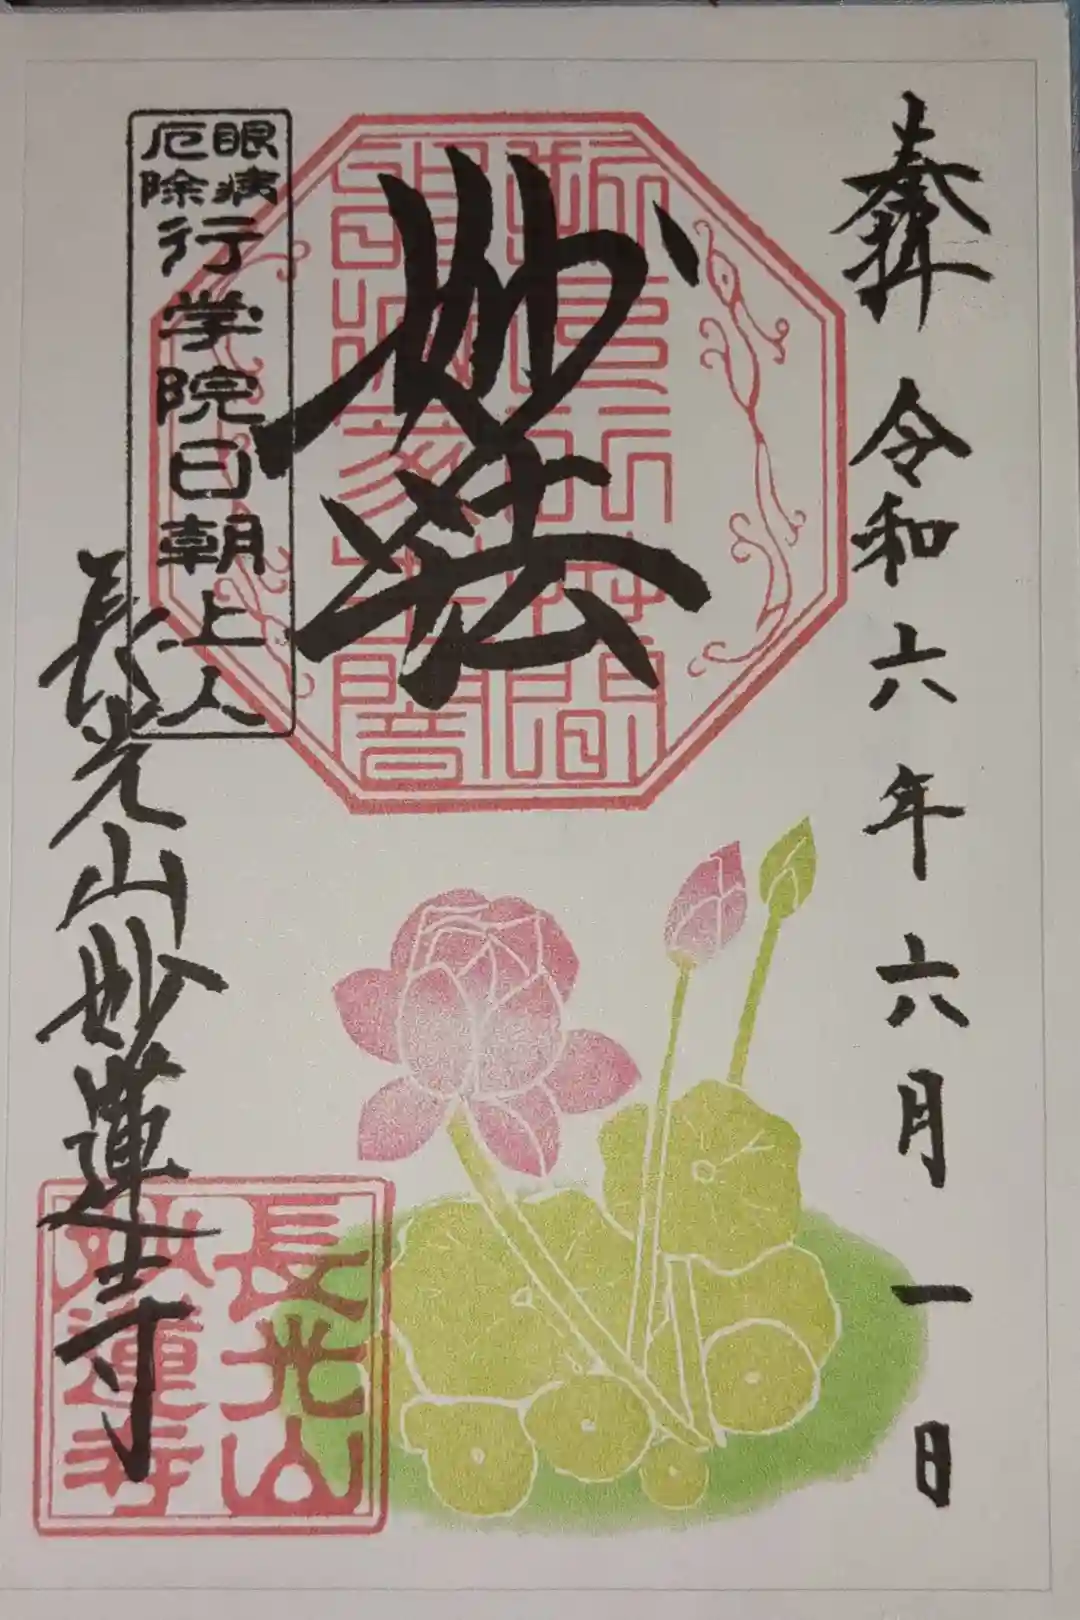 奉拝
令和六年六月一日
妙法
眼病
厄除
行学院日朝上人
長光山妙蓮寺
長光山
妙蓮寺